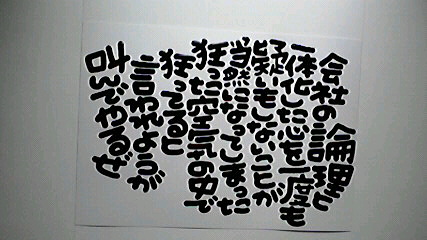 会社の論理と
一体化した心を一度も
疑いもしないことが
当然になってしまった
狂った空気の中で
狂ってると
言われようが
叫んでやるぜ